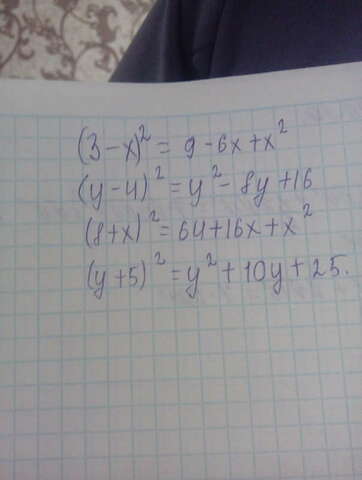 (3-x)² = 9-6x+x²
(y-4)² = y²-8y+16
(8+x)² = 64+16x+x²
(y+5)² = y²+10y+25.